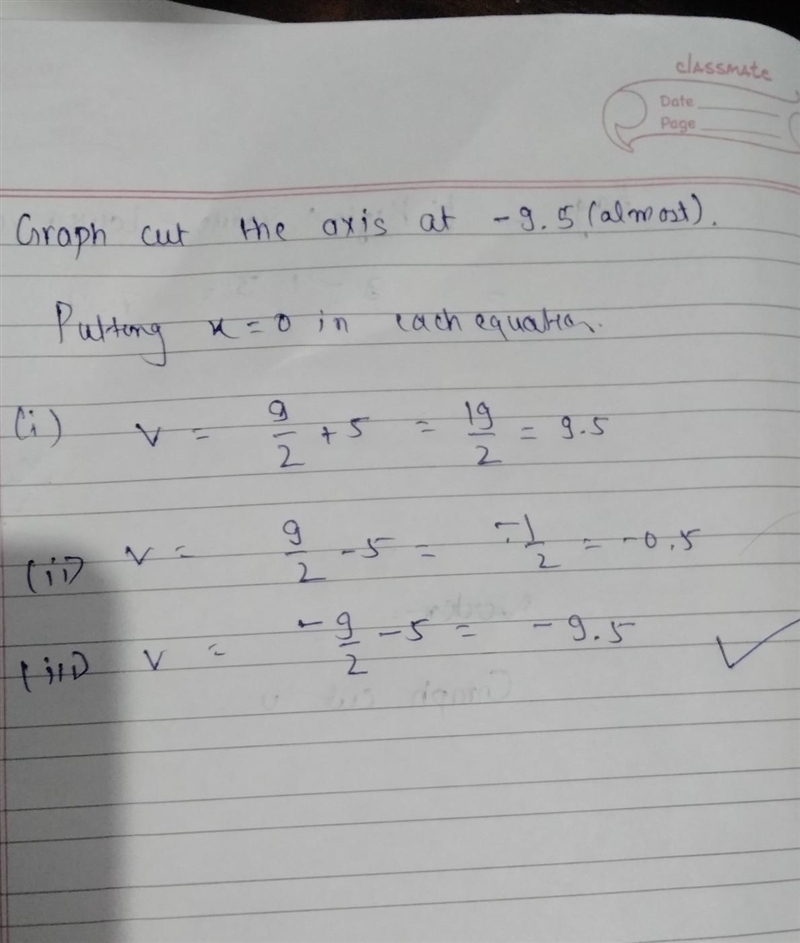 classmate
Date
Page
Graph cut the axis at -9.5 (almost).
Putting x=0 in each equation.
(i) v = 9/2 + 5 = 19/2 = 9.5
(ii) v = 9/2 - 5 = -1/2 = -0.5
(iii) v = -9/2 - 5 = -9.5 ✓